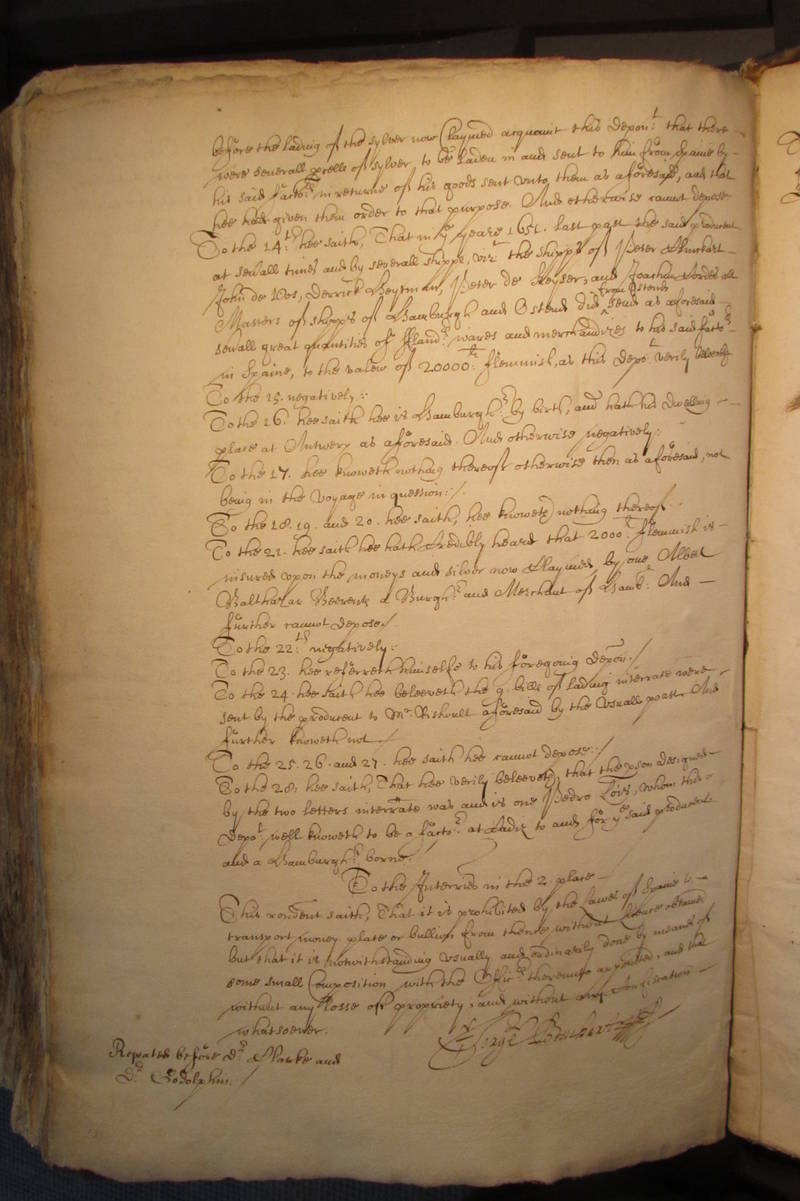 before the lading of the sylver now Claymed acquaint this Depon:t that there
were severall prcells of sylver to be laden in and sent to him from Spaine by
his said facto:rs in returne of his goods sent unto them as aforesaid, and that
hee had given them order to that purpose. And otherwise cannot depose
To the 14:th hee saith, That in ye yeare 1651. last past the said producent
at sevall times and by severall shipps, vizt the shipps of Peter
John de Vos, Derrick Beytman, Peter de Keyser, and Joachim all
Masters of shipps of Hamburgh and Ostend did from Ostend send as aforesaid
sevall great quantities of Fland:rs wares and merchandizes to his said facto:rs
in Spaine, to the valew of 20000:li Flemmish, as this Depo:t verily beleeveth
To the 15. negatively:
To the 16. hee saith hee is Hamburgh:r by birth, and hath his Dwelling
place at Antwerp as aforesaid. And otherwise negatively:
To the 17. hee knoweth nothing thereof otherwise then as aforesaid, not
being in the voyage in question:/.
To the 18. 19. and 20. hee saith, hee knoweth nothing thereof.
To the 21. hee saith hee hath Credibly heard that 2000:li Flemmish is
insured upon the moneys and silver now Claymed, by one Albert
Balthazar Beerents a Burgh:r and Merchant of Hamb:r And
further cannot Depose./
To the 22:th negatively:
To the 23. hee referreth himselfe to his foregoing Depon./
To the 24. hee saith hee beleeveth the 9. bills of lading interrate were
sent by the producent to Mr Rishoult aforesaid by the Usuall poast. And
further knoweth not./
To the 25. 26. and 27. hee saith hee cannot depose:/
To the 28. hee saith, That hee verily beleeveth, that the pson designed
by the two letters interrate was and is one Pedro Lois, whom this
Depo:t well knoweth to be a facto:r at Cadiz to and for ye said producent
and a Hamburgh:r borne./
To the Interries in the 2. place
This rondent saith, That it is prohibited by the Lawes of Spaine to
transport money plate or bullion from thence without licence obtained
but that it is notwithstanding usually and ordinarily done by meanes of
some small Composition with the Offic:rs thereunto appointed, and that
without any losse of propriety, and without any Confiscation
whatsoever.
Repeated before Dr. Clarke and
Dr. Godolphin./